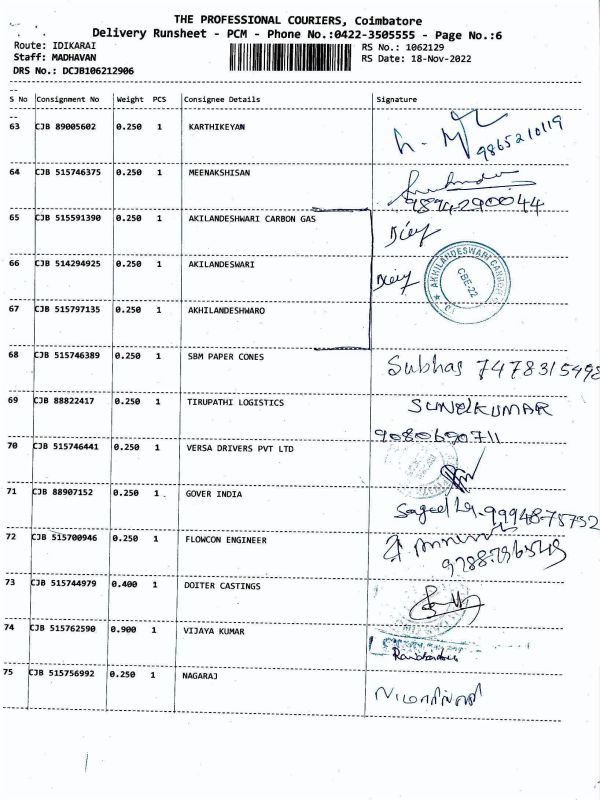 THE PROFESSIONAL COURIERS, Coimbatore
Delivery Runsheet - PCM - Phone No.:0422-3505555 - Page No.:6
Route: IDIKARAI
RS No.: 1062129
Staff: MADHAVAN
RS Date: 18-Nov-2022
DRS No.: DCJB106212906
S No Consignment No Weight PCS Consignee Details Signature
63 CJB 89005602 0.250 1 KARTHIKEYAN
9865210119
64 CJB 515746375 0.250 1 MEENAKSHISAN
9894290044
65 CJB 515591390 0.250 1 AKILANDESHWARI CARBON GAS
66 CJB 514294925 0.250 1 AKILANDESWARI
CBE-22
67 CJB 515797135 0.250 1 AKHILANDESHWARO
68 CJB 515746389 0.250 1 SBM PAPER CONES Subhas 7478315498
69 CJB 88822417 0.250 1 TIRUPATHI LOGISTICS SUNILKUMAR
9080690711
70 CJB 515746441 0.250 1 VERSA DRIVERS PVT LTD
71 CJB 88907152 0.250 1 GOVER INDIA
72 CJB 515700946 0.250 1 FLOWCON ENGINEER
73 CJB 515744979 0.400 1 DOITER CASTINGS
74 CJB 515762590 0.900 1 VIJAYA KUMAR
75 CJB 515756992 0.250 1 NAGARAJ